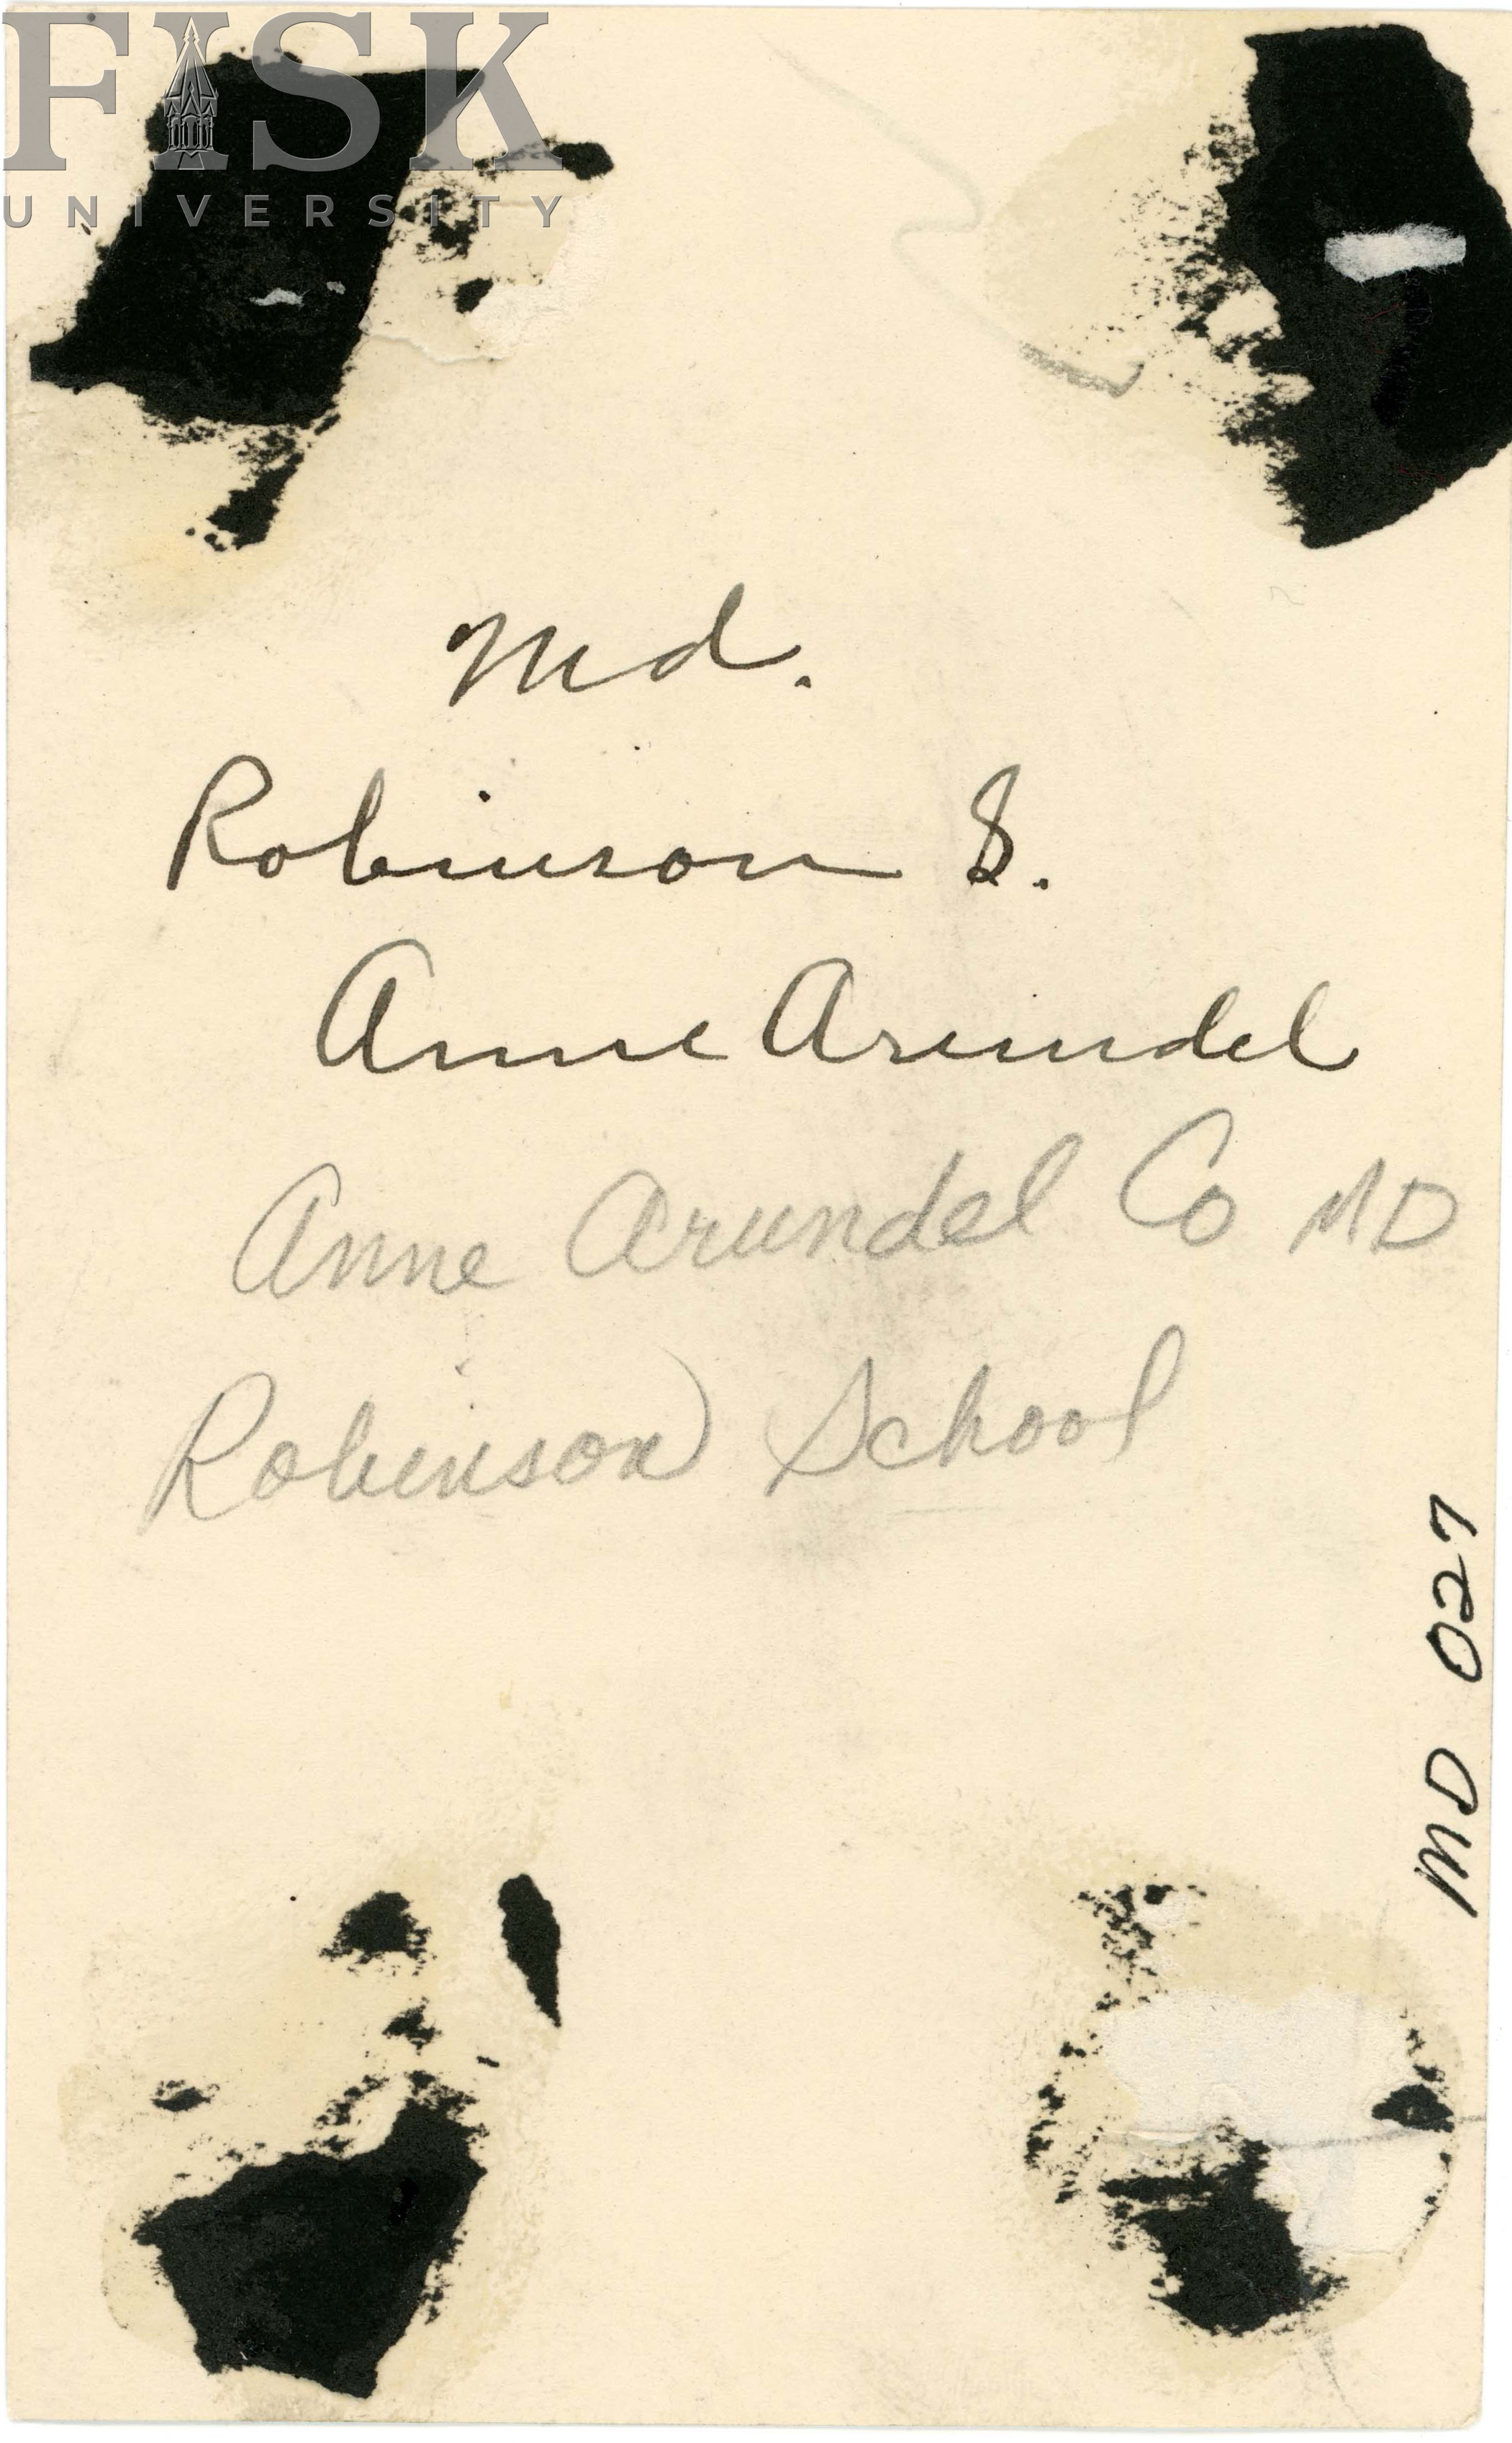 FISK
UNIVERSITY
Md.
Robinson S.
Anne Arundel
Anne Arundel Co MD
Robinson School
MD 027